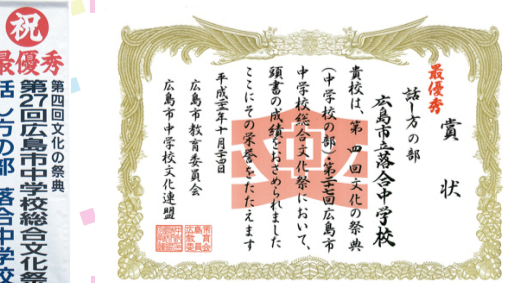 祝
最優秀
第四回文化の祭典
第27回広島市中学校総合文化祭
話し方の部 落合中学校
賞状
最優秀
話し方の部
広島市立落合中学校
貴校は、第四回文化の祭典
(中学校の部)・第二十七回広島市
中学校総合文化祭において、
頭書の成績をおさめられました
ここにその栄誉をたたえます
平成 年十月
広島市教育委員会
広島市中学校文化連盟